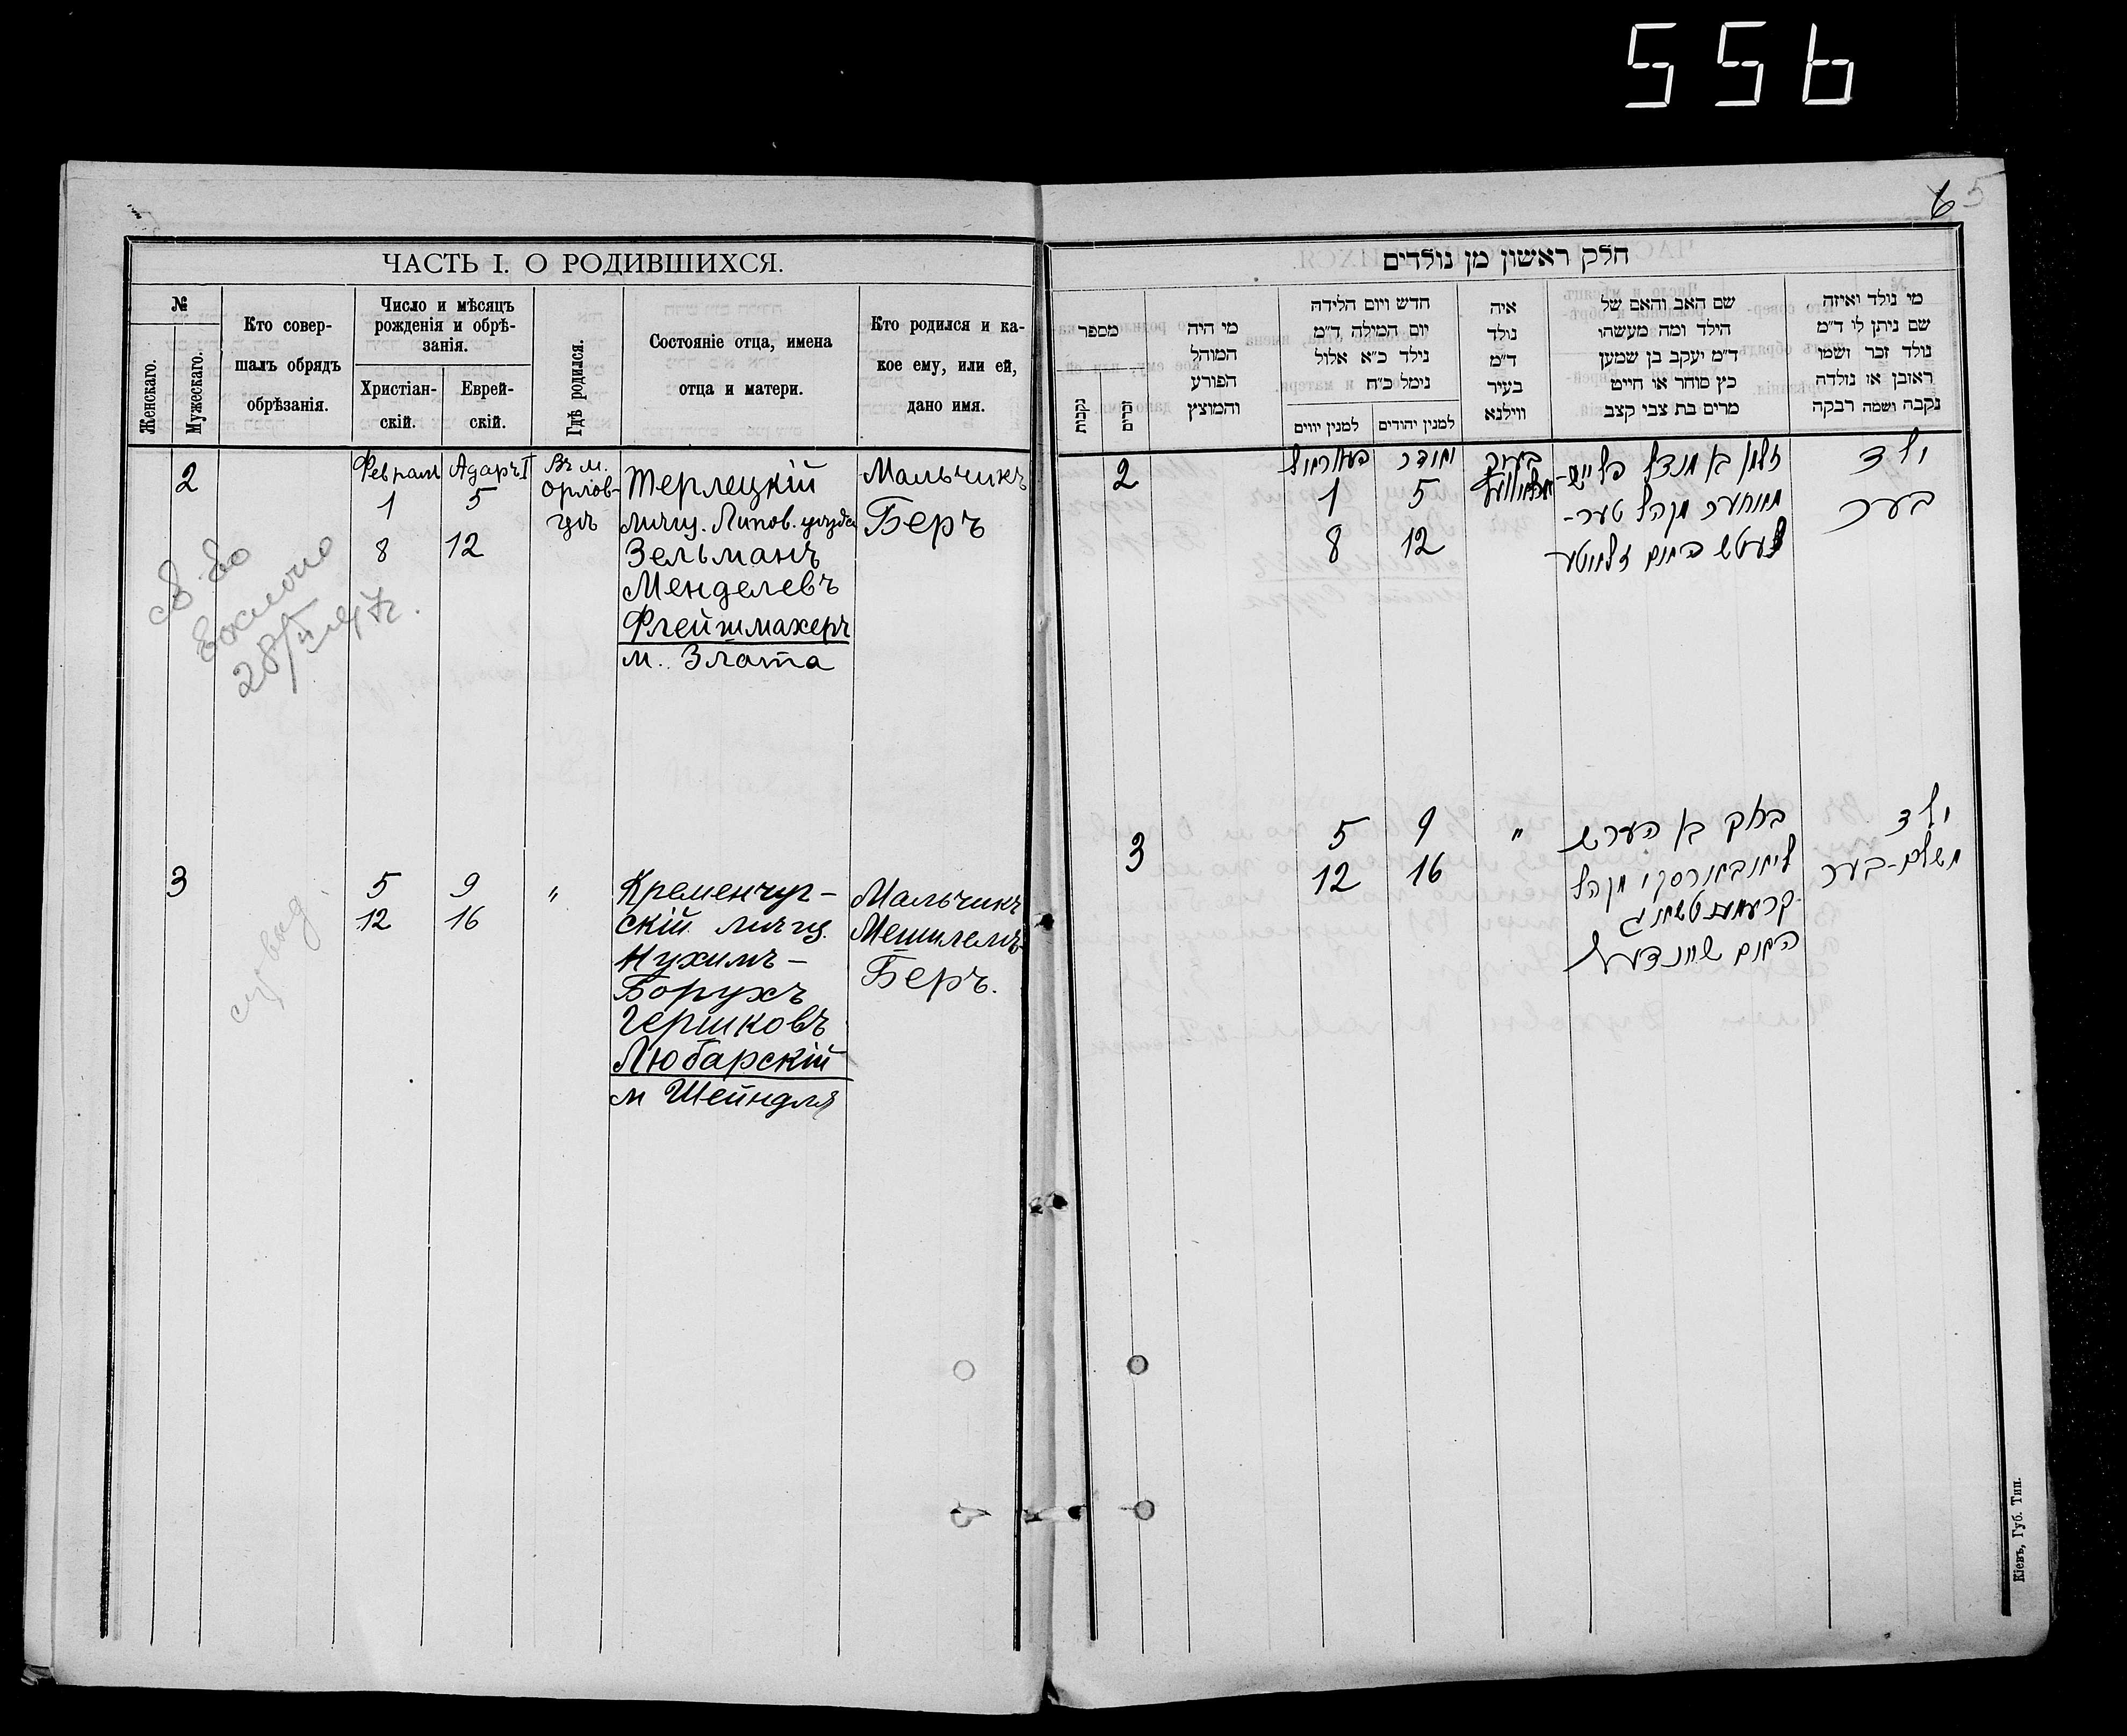 556
6 5
ЧАСТЬ I. О РОДИВШИХСЯ.
№
Женскаго.
Мужескаго.
Кто совер-
шалъ обрядъ
обрѣзанія.
Число и мѣсяцъ
рожденія и обрѣ-
занія.
Христіан-
скій.
Еврей-
скій.
Гдѣ родился.
Состояніе отца, имена
отца и матери.
Кто родился и ка-
кое ему, или ей,
дано имя.
2
Февраля
1
8
Адаръ I
5
12
Въ м.
Орлов-
цѣ
Терлецкій
мѣщ. Липов. уѣзда
Зельманъ
Менделевъ
Флейшмахеръ
м. Злота
Мальчикъ
Беръ
св-во
3
5
12
9
16
"
Кременчуг-
скій мѣщ.
Нухимъ-
Борухъ
Гершковъ
Любарскій
м Шейндля
Мальчикъ
Мешилемъ
Беръ.
חלק ראשון מן נולדים
מספר
נקבות
זכרים
מי היה
המוהל
הפורע
והמוצץ
חדש ויום הלידה
יום המילה ד״מ
נולד כ״א אלול
נימל כ״ח
למנין יווים
למנין יהודים
איה
נולד
ד״מ
בעיר
ווילנא
שם האב והאם של
הילד ומה מעשהו
ד״מ יעקב בן שמען
כץ סוחר או חייט
מרים בת צבי קצב
מי נולד ואיזה
שם ניתן לו ד״מ
נולד זכר ושמו
ראובן או נולדה
נקבה ושמה רבקה
2
1
8
5
12
זלמן בא מנדל פלייש-
מאכער מקהל טער-
ילד
בער
3
5
12
9
16
"
ברוך בא הערש
מקהל
ילד
משלם-בער
Кіевъ, Губ. Тип.